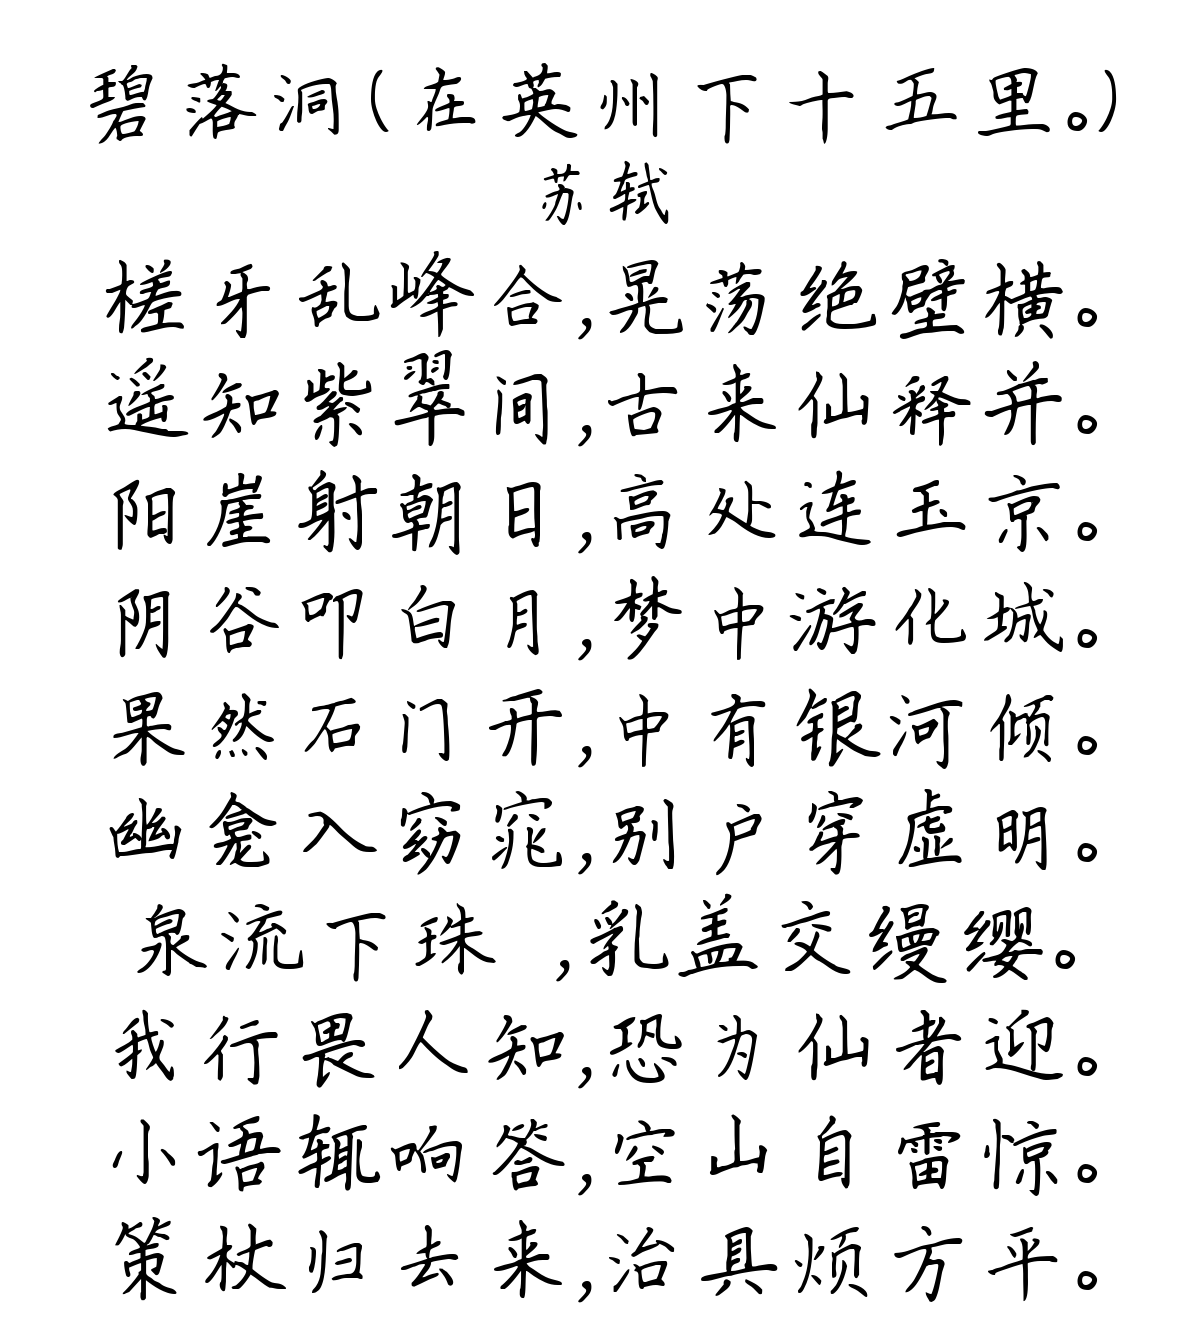 碧落洞(在英州下十五里。)
苏轼
槎牙乱峰合,晃荡绝壁横。
遥知紫翠间,古来仙释并。
阳崖射朝日,高处连玉京。
阴谷叩白月,梦中游化城。
果然石门开,中有银河倾。
幽龛入窈窕,别户穿虚明。
泉流下珠 ,乳盖交缦缨。
我行畏人知,恐为仙者迎。
小语辄响答,空山自雷惊。
策杖归去来,治具烦方平。